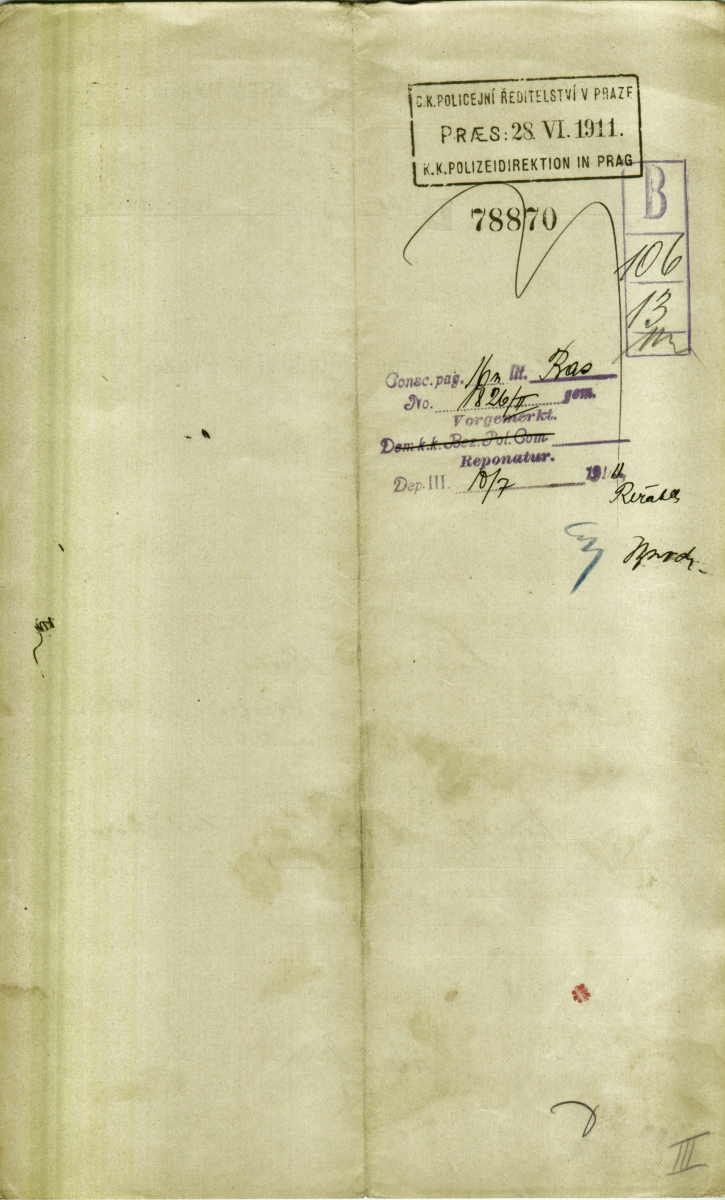 C.K.POLICEJNÍ ŘEDITELSTVÍ V PRAZE
PRÆS: 28. VI. 1911.
K.K.POLIZEIDIREKTION IN PRAG
78870
B
106
13
Consc. pag. lit. Bas
No. 1826/II gem.
Vorgemerkt.
Dem k.k. Bez. Pol. Com
Reponatur.
Dep. III. 10/7 1911
III